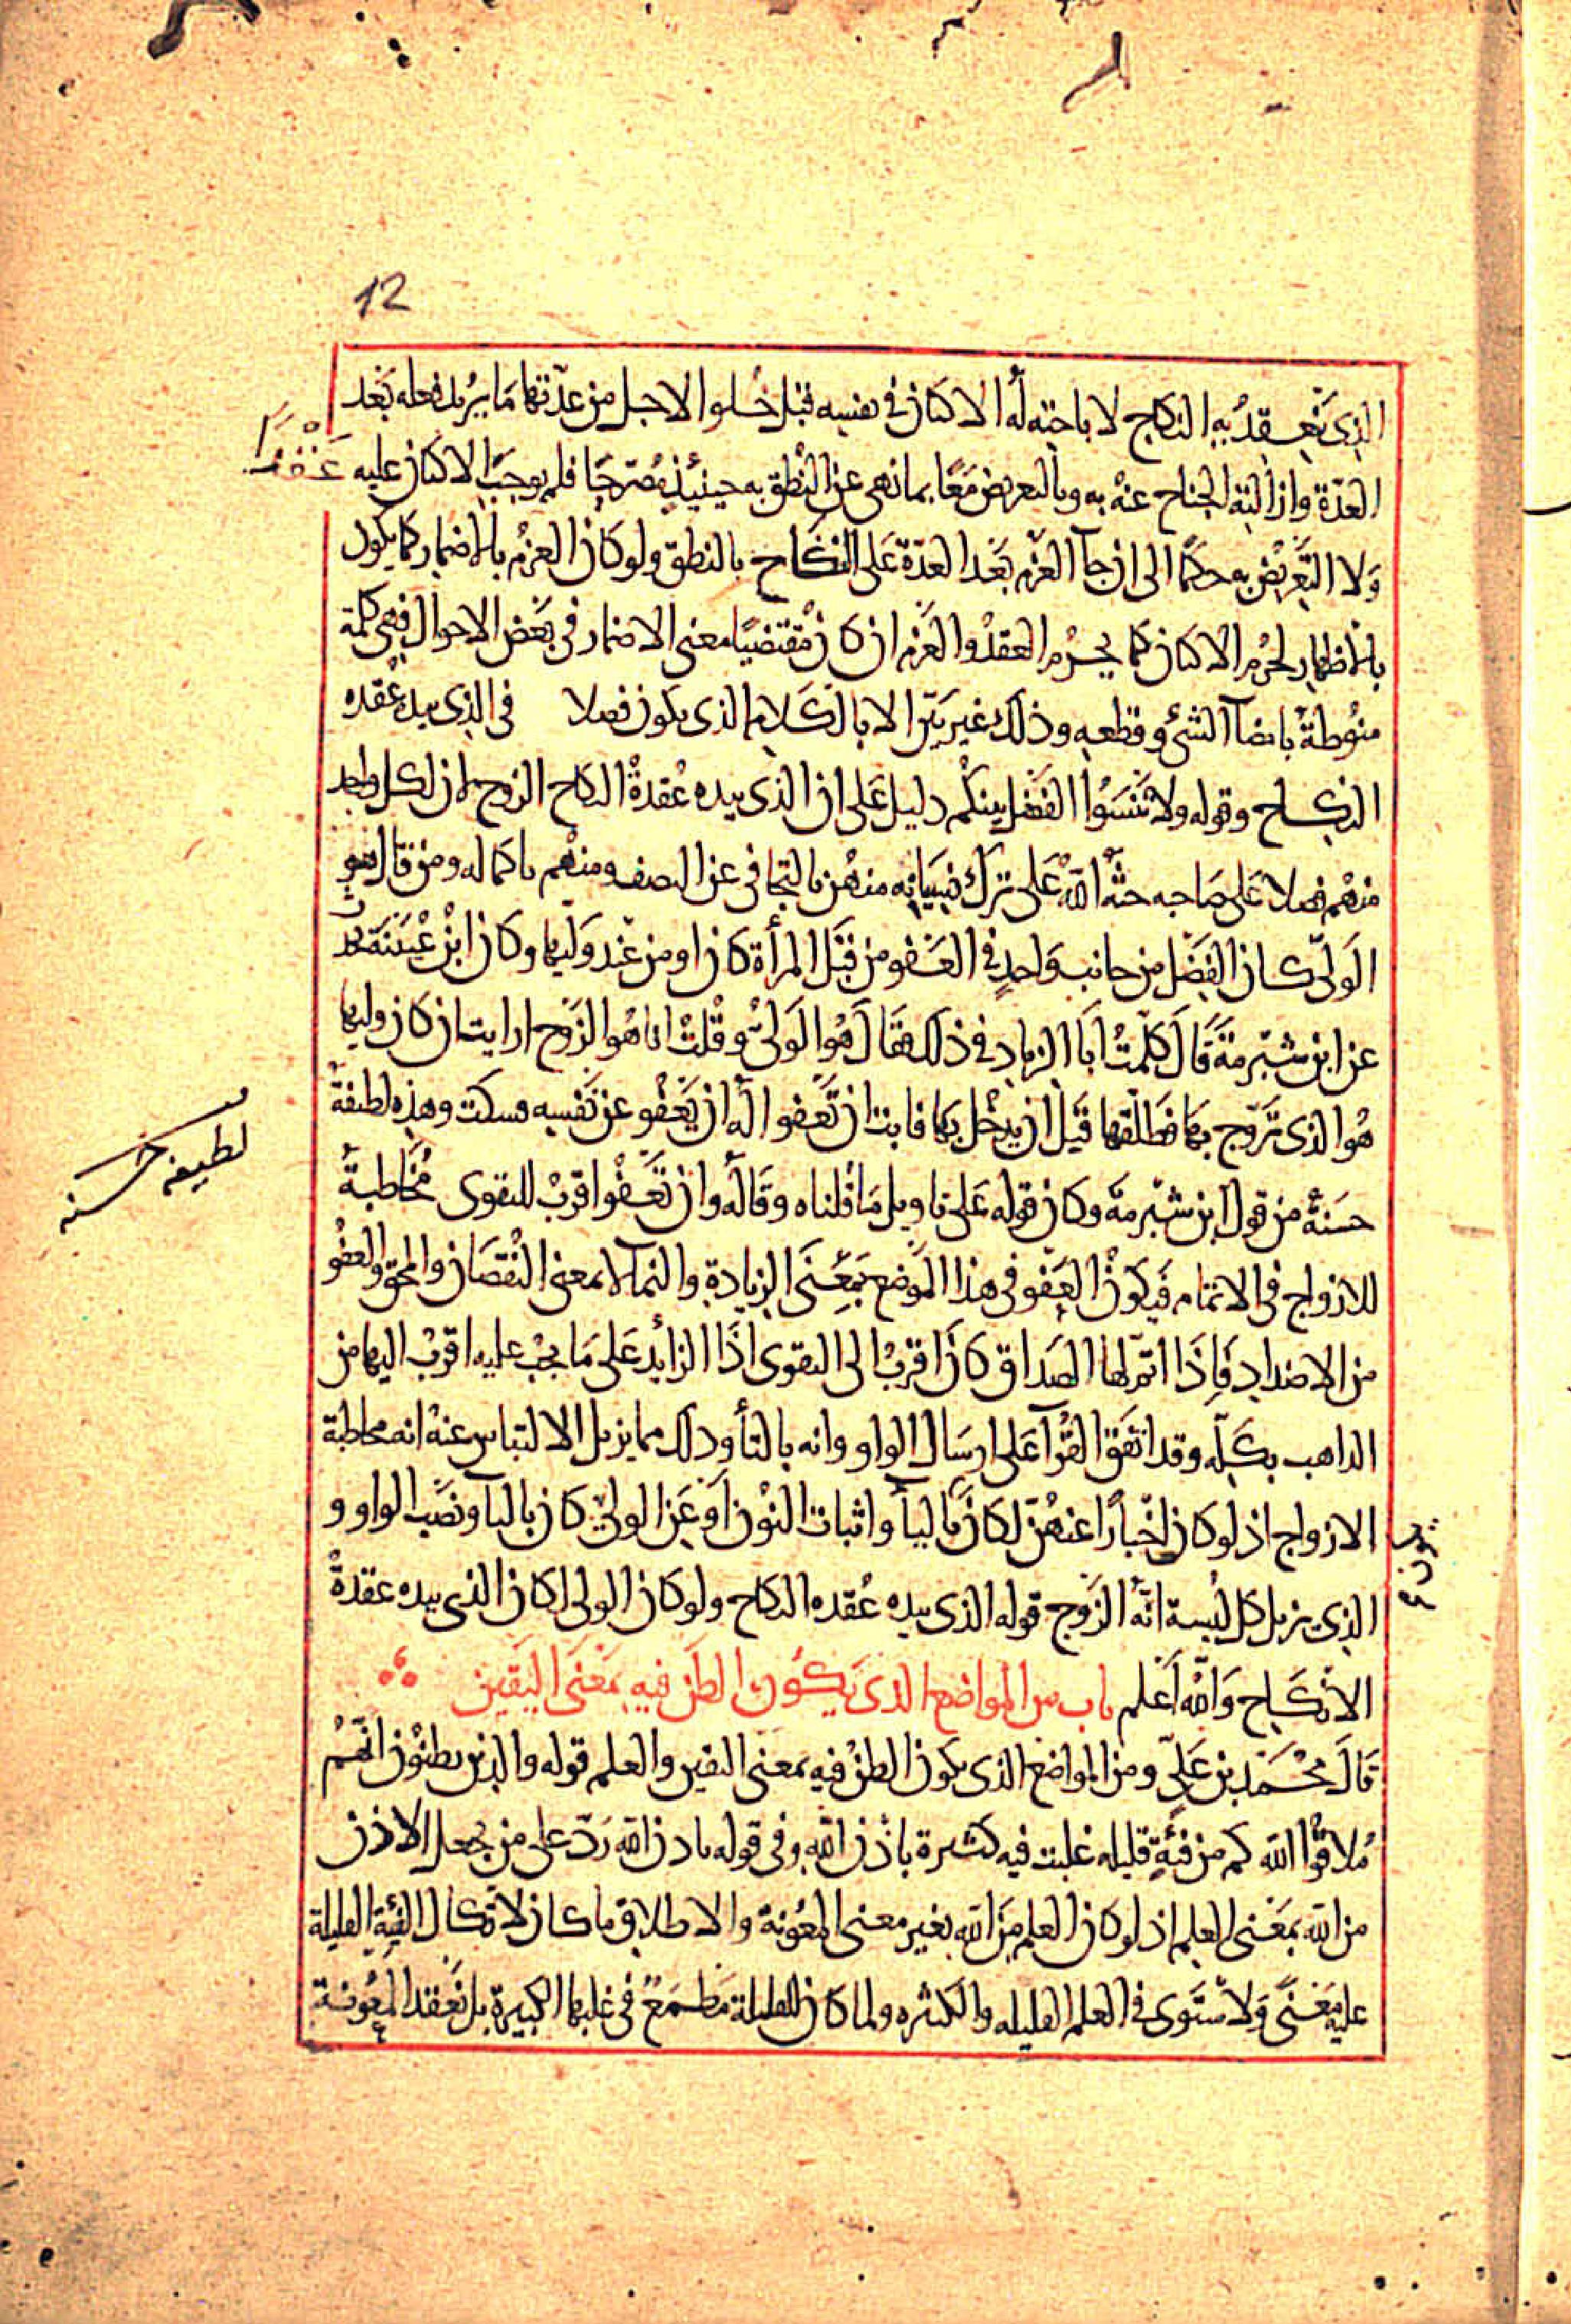 12
الذي تنعقد به النكاح لاباحته له الاكنان في نفسه قبل خلوا الاجل من عدّتها ما يريد فعله بعد
العدّة وازالته الجناح عنه به وبالتعريض معًا بما نهى عن النطق به حينئذ مُصَرّحًا فلم يوجب الاكنان عليه عَقْدًا
وَلا التَّعريْض به حكمًا الى ان جآ العزم بَعْد العدّة على النكاح بالنطق ولو كان العزم بالاضمار كما يكون
بالاظهار لحرُم الاكنان كما يحرُم العقدُ والعزم ان كان مقتضيًا معنى الاضمار في بعض الاحوال فهي كلمة
منُوطةٌ بامضآ الشيء وقطعه وذلك غير بَيّن الا بالكلام الذي يكون فصلا في الذي بيده عُقدة
النكاح وقوله ولا تنسَوُا الفضل بينكم دليل على ان الذي بيده عُقدةُ النكاح الزوج لان لكل واحد
منهم فضلا على صاحبه حثّه اللّه على ترك نسيانه منهن بالتجافي عن النصف ومنهم باكماله ومن قال هو
الوليّ كان الفضل من جانب واحدٍ في العفو من قبَل المرأة كان او من عند وليها وكان ابنُ عُيَيْنَة يحدث
عن ابن شبْرمَة قَال كلّمتُ ابَا الزناد في ذلك فقال هُوا لوليّ وقلتُ انا هُو الزوج ارايت ان كان وليها
هُو الذي تزّوج بها فطلّقها قبل ان يدخل بها فابت ان تعفو اَله ان يَعْفُو عن نفسه فسكت وهذه لطيفةٌ
لطيفه حسنه
حسَنةٌ من قول ابن شبْرمة وكان قوله على تاويل مَا قلناه وقاله وان تعفُوا اقربُ للتقوى مخاطبةٌ
للازواج في الاتمام فيكونُ العفو في هذا الموضع بمعنى الزيادة والنمآ لا بمعنى النقصان والمحق والعفو
من الاضداد فاِذَا اتم لها الصداق كان اقربُ الى التقوى اذا الزائد على مَا يجبُ عليه اقربُ اليها من
الذاهب بكلّه وقد اتّفق القرّآ على ارسَال الواو وانه بالتأ وذلك مما يزيل الالتباس عنهُ انه مخاطبة
الازواج اذ لو كان اخْبارًا عنهُنّ لكان باليأ واثبات النوْن اَو عَن الولي كان باليا ونصب الواو و
الذي يزيل كل لبْسة انّهُ الزوج قوله الذي بيده عُقده النكاح ولو كان الولي لكان الذي بيده عقدةُ
الانكاح وَاللّه اَعلم باب من المواضع الذي يَكُون الظن فيه بمَعْنَى اليَقين
قَالَ محمّد بن عَليّ ومن المواضع الذي يكون الظن فيه بمعنى اليقين والعلم قوله والذين يظنوْن انّهمْ
مُلاقُوا اللّه كم من فئةٍ قليله غلبت فيه كثيرة باذن اللّه وفي قوله باذن اللّه رَدّ على من يجعل الاذن
من اللّه بمَعْنى العلم اذ لو كان العلم مِنَ اللّه بغير معنى المعُونة والاطلاق ما كان لاتكال الفئة القليلة
عليه مَعْنًى وَلاَسْتَوى في العلم القليله والكثيره ولما كان للقليلة مَطمَعٌ في غلبها الكبيرة بل نعقد المعُونة